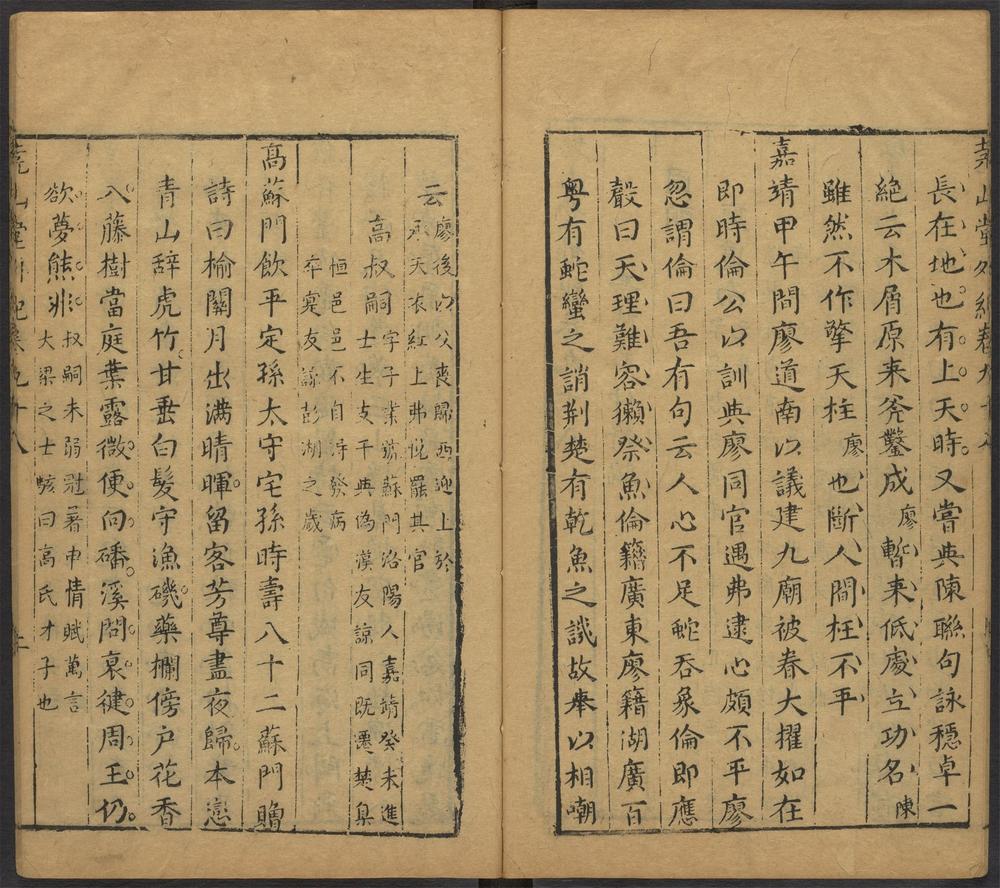 長在地也有上天時又嘗與陳聯句詠穩卓一
絶云木屑原来斧鑿成廖暫来低處立功名陳
雖然不作擎天柱廖也斷人間枉不平
嘉靖甲午間廖道南以議建九廟被春大擢如在
即時倫公以訓與廖同官遇弗逮心頗不平廖
忽謂倫曰吾有句云人心不足蛇吞象倫即應
聲曰天理難容獺祭魚倫籍廣東廖籍湖廣百
粤有蛇蠻之誚荆楚有乾魚之譏故舉以相嘲
云廖後以父喪歸西迎上於
承天衣紅上弗悦罷其官
高叔嗣字子業號蘇門洛陽人嘉靖癸未進
士生支干與偽漢友諒同既遷楚臬
恒邑邑不自得發病
卒寔友諒彭湖之歲
高蘇門飲平定孫太守宅孫時壽八十二蘇門贈
詩曰榆關月出满晴暉留客芳尊盡夜歸本戀
青山辭虎竹甘垂白髮守漁磯藥欄傍戸花香
入藤樹當庭葉露微便向磻溪問衮健周王仍
欲夢熊非叔嗣未弱冠著申情賦萬言
大梁之士駭曰高氏才子也